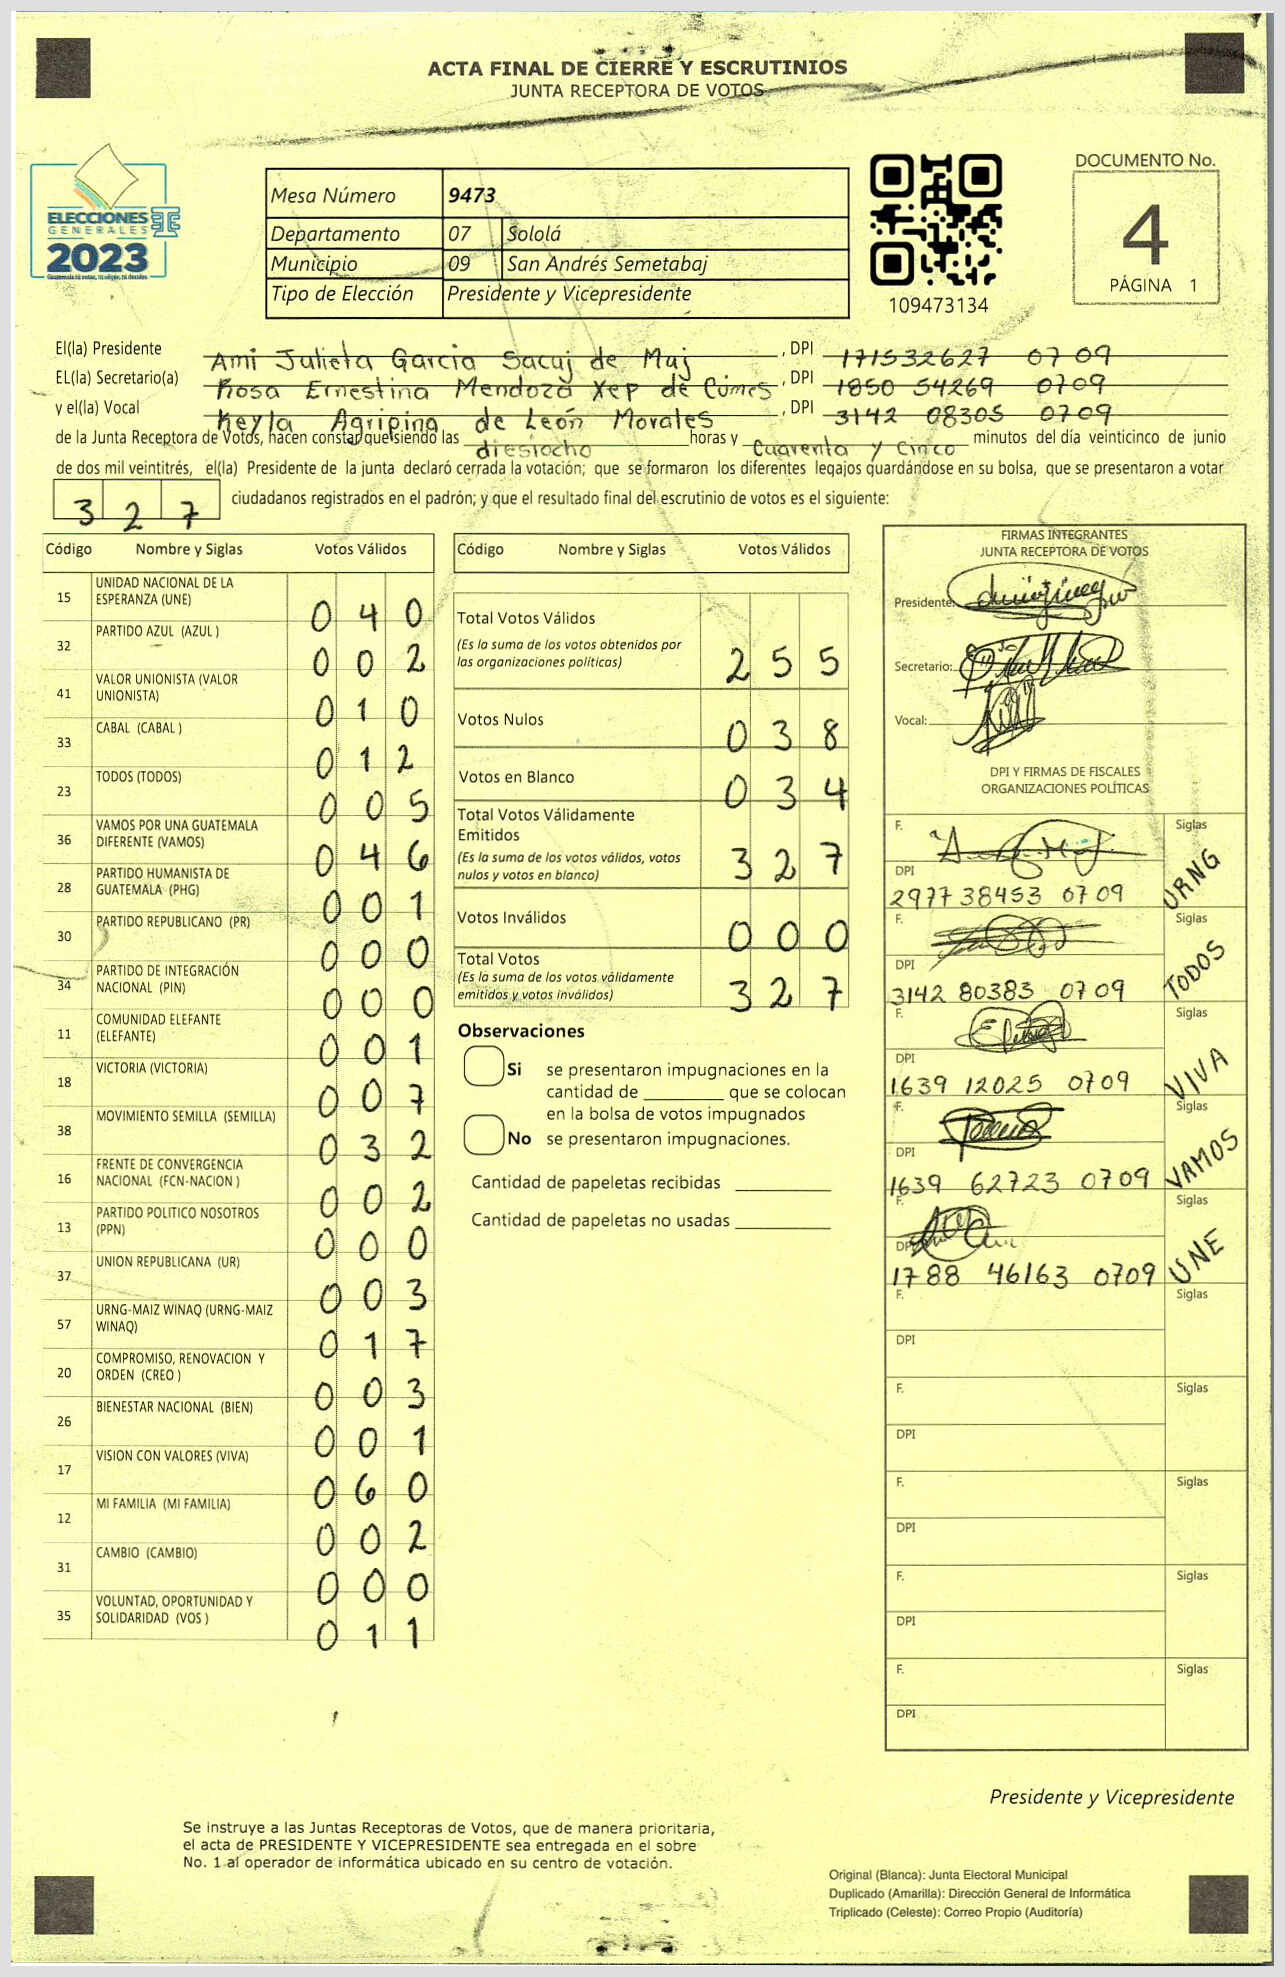 ACTA FINAL DE CIERRE Y ESCRUTINIOS
JUNTA RECEPTORA DE VOTOS
ELECCIONES
GENERALES
2023
Mesa Número 9473
Departamento 07 Sololá
Municipio 09 San Andrés Semetabaj
Tipo de Elección Presidente y Vicepresidente
109473134
DOCUMENTO No.
4
PÁGINA 1
El(la) Presidente Ami Julieta Garcia Sacuj de Muj , DPI 171532627 0709
EL(la) Secretario(a) Rosa Ernestina Mendoza Xep de Cúmes , DPI 1850 54269 0709
y el(la) Vocal Keyla Agripina de León Morales , DPI 3142 08305 0709
de la Junta Receptora de Votos, hacen constar que siendo las diesiocho horas y Cuarenta y Cinco minutos del día veinticinco de junio
de dos mil veintitrés, el(la) Presidente de la junta declaró cerrada la votación; que se formaron los diferentes legajos guardándose en su bolsa, que se presentaron a votar
327 ciudadanos registrados en el padrón; y que el resultado final del escrutinio de votos es el siguiente:
Código Nombre y Siglas Votos Válidos
15 UNIDAD NACIONAL DE LA ESPERANZA (UNE) 040
32 PARTIDO AZUL (AZUL ) 002
41 VALOR UNIONISTA (VALOR UNIONISTA) 010
33 CABAL (CABAL ) 012
23 TODOS (TODOS) 005
36 VAMOS POR UNA GUATEMALA DIFERENTE (VAMOS) 046
28 PARTIDO HUMANISTA DE GUATEMALA (PHG) 001
30 PARTIDO REPUBLICANO (PR) 000
34 PARTIDO DE INTEGRACIÓN NACIONAL (PIN) 000
11 COMUNIDAD ELEFANTE (ELEFANTE) 001
18 VICTORIA (VICTORIA) 007
38 MOVIMIENTO SEMILLA (SEMILLA) 032
16 FRENTE DE CONVERGENCIA NACIONAL (FCN-NACION ) 002
13 PARTIDO POLITICO NOSOTROS (PPN) 000
37 UNION REPUBLICANA (UR) 003
57 URNG-MAIZ WINAQ (URNG-MAIZ WINAQ) 017
20 COMPROMISO, RENOVACION Y ORDEN (CREO ) 003
26 BIENESTAR NACIONAL (BIEN) 001
17 VISION CON VALORES (VIVA) 060
12 MI FAMILIA (MI FAMILIA) 002
31 CAMBIO (CAMBIO) 000
35 VOLUNTAD, OPORTUNIDAD Y SOLIDARIDAD (VOS ) 011
Código Nombre y Siglas Votos Válidos
Total Votos Válidos
(Es la suma de los votos obtenidos por
las organizaciones políticas) 255
Votos Nulos 038
Votos en Blanco 034
Total Votos Válidamente
Emitidos
(Es la suma de los votos válidos, votos
nulos y votos en blanco) 327
Votos Inválidos 000
Total Votos
(Es la suma de los votos válidamente
emitidos y votos inválidos) 327
Observaciones
Si se presentaron impugnaciones en la
cantidad de ________ que se colocan
en la bolsa de votos impugnados
No se presentaron impugnaciones.
Cantidad de papeletas recibidas
Cantidad de papeletas no usadas
FIRMAS INTEGRANTES
JUNTA RECEPTORA DE VOTOS
Presidente:
Secretario:
Vocal:
DPI Y FIRMAS DE FISCALES
ORGANIZACIONES POLÍTICAS
F. Siglas URNG
DPI
2977 38453 0709
F. Siglas TODOS
DPI
3142 80383 0709
F. Siglas VIVA
DPI
1639 12025 0709
F. Siglas VAMOS
DPI
1639 62723 0709
F. Siglas UNE
DPI
1788 46163 0709
F. Siglas
DPI
F. Siglas
DPI
F. Siglas
DPI
F. Siglas
DPI
F. Siglas
DPI
Presidente y Vicepresidente
Se instruye a las Juntas Receptoras de Votos, que de manera prioritaria,
el acta de PRESIDENTE Y VICEPRESIDENTE sea entregada en el sobre
No. 1 al operador de informática ubicado en su centro de votación.
Original (Blanca): Junta Electoral Municipal
Duplicado (Amarilla): Dirección General de Informática
Triplicado (Celeste): Correo Propio (Auditoría)